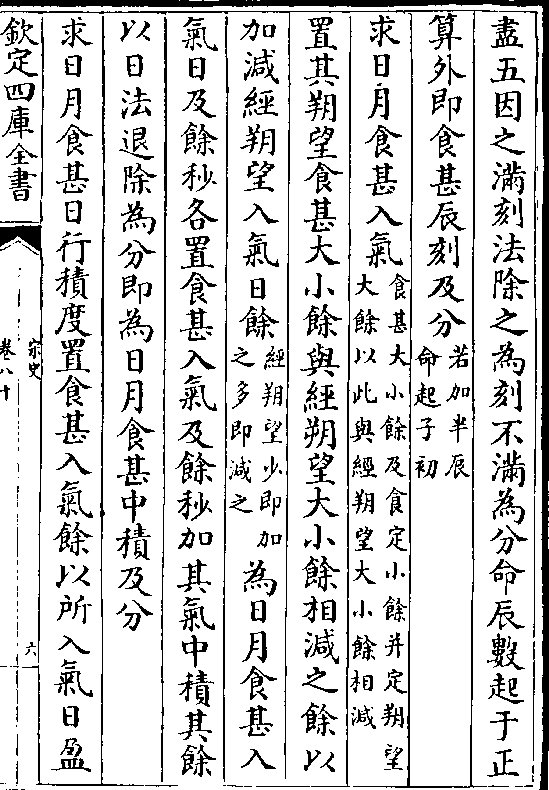 盡五因之滿刻法除之為刻不滿為分命辰數起于正
算外即食甚辰刻及分若加半辰命起子初
求日月食甚入氣食甚大小餘及食定小餘并定朔望大餘以此與經朔望大小餘相減
置其朔望食甚大小餘與經朔望大小餘相減之餘以
加減經朔望入氣日餘經朔望少即加之多即減之為日月食甚入
氣日及餘秒各置食甚入氣及餘秒加其氣中積其餘
以日法退除為分即為日月食甚中積及分
求日月食甚日行積度置食甚入氣餘以所入氣日盈
欽定四庫全書
宋史
卷八十
六